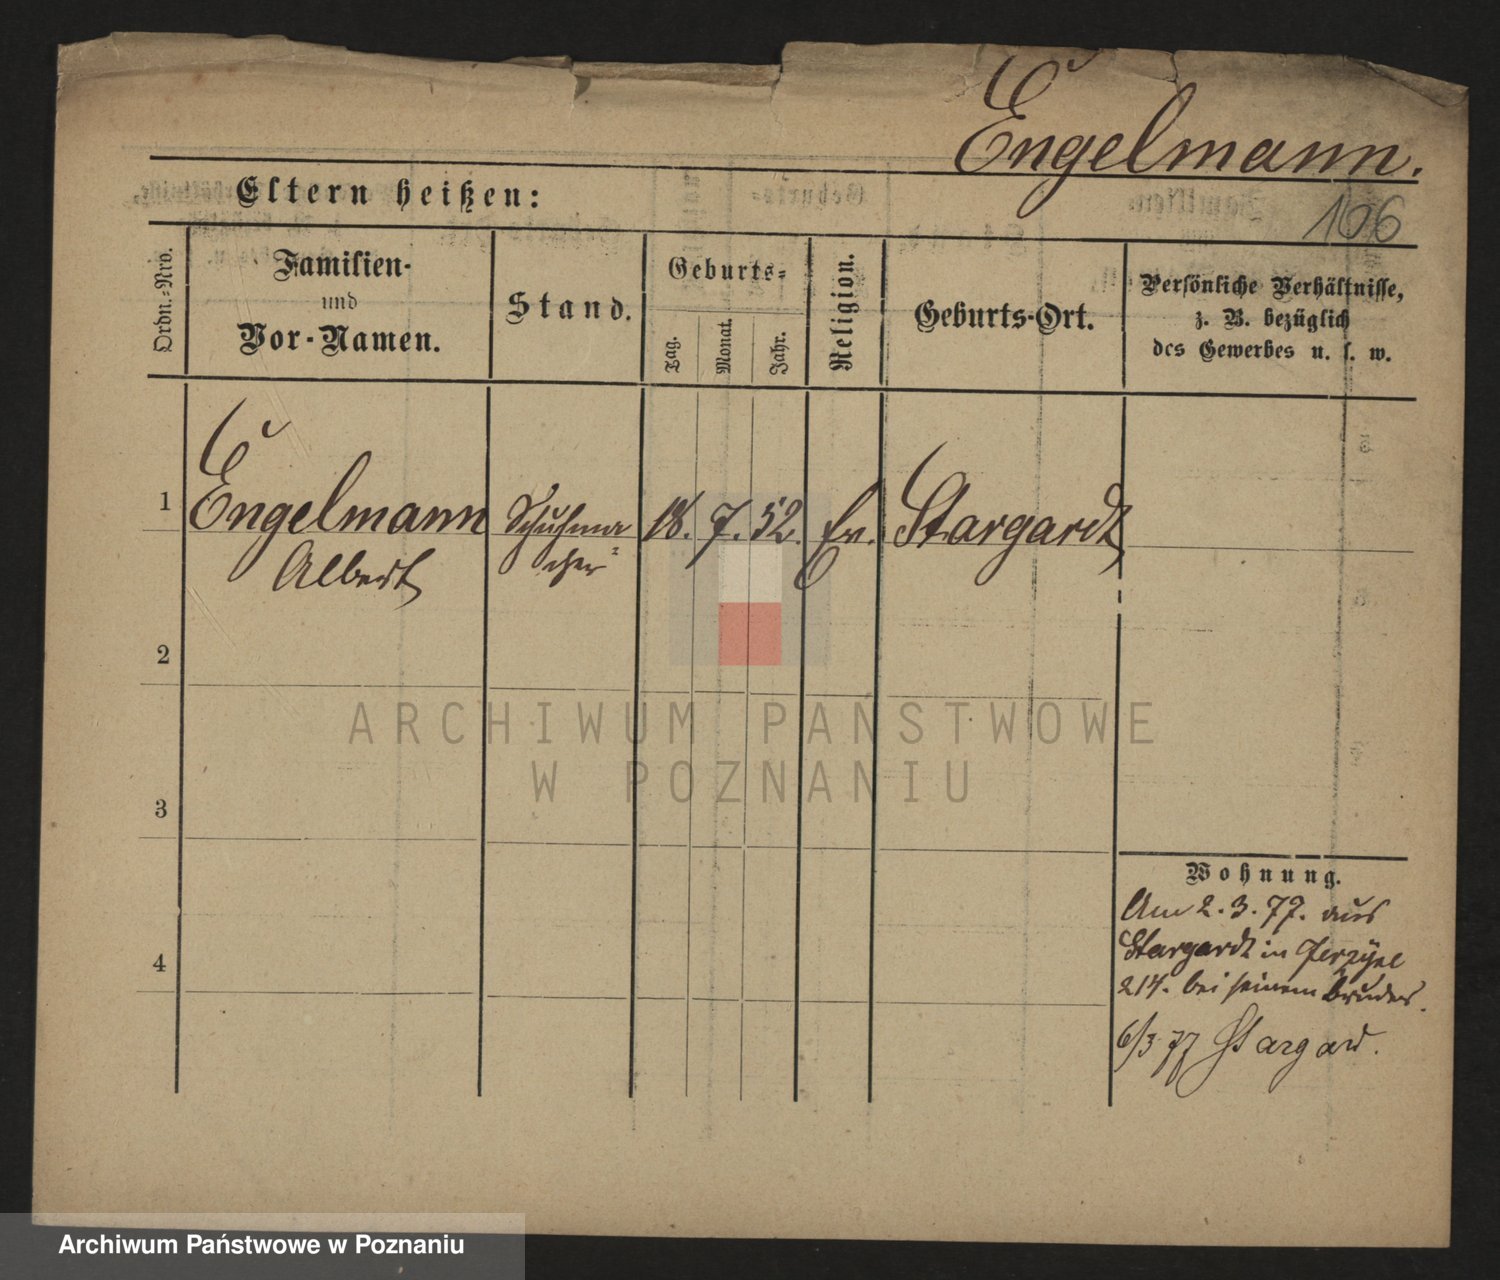 Engelmann.
106
Eltern heißen:
Ordn.-Nro.
Familien-
und
Vor-Namen.
Stand.
Geburts-
Tag.
Monat.
Jahr.
Religion.
Geburts-Ort.
Persönliche Verhältnisse,
z. B. bezüglich
des Gewerbes u. s. w.
1
Engelmann
Albert
Schuhma=
cher
18.
7.
52.
Ev.
Stargardt
2
3
4
Wohnung.
Am 2. 3. 77. aus
Stargardt in Jerzyce
214. bei seinem Bruder.
6/3 77 Stargard.
ARCHIWUM PAŃSTWOWE
W POZNANIU
Archiwum Państwowe w Poznaniu